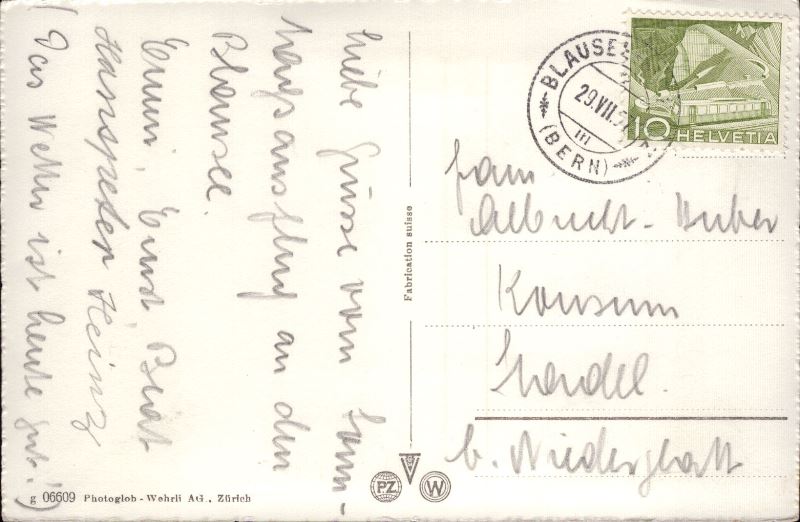 Liebe Grüsse vom Sonn-
tagsausflug an den
Blausee.
Emmi, Ernst Beat
Hanspeter Heinz
(Das Wetter ist heute gut!)
Fabrication suisse
BLAUSEE
29.VII.5
(BERN)
10 HELVETIA
Frau
Albrecht-Huber
Konsum
b. Niederglatt
PZ
W
g 06609 Photoglob-Wehrli AG., Zürich